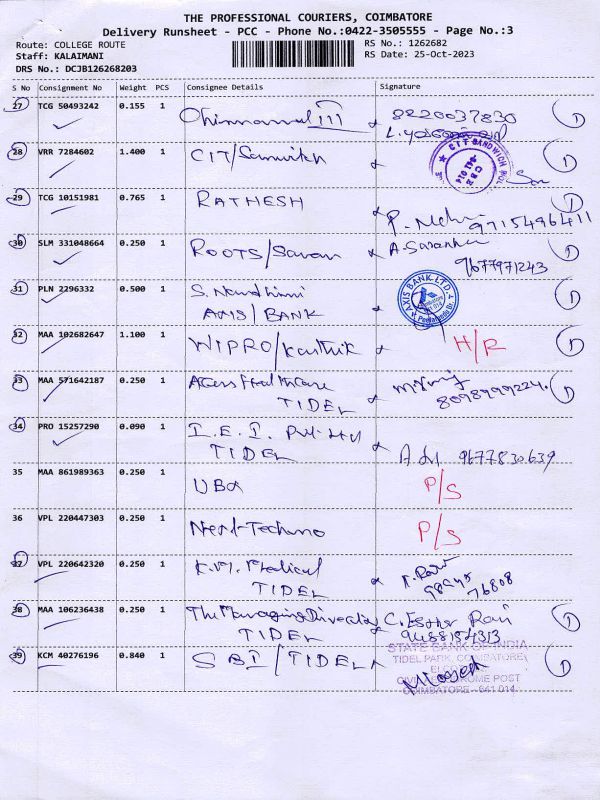 THE PROFESSIONAL COURIERS, COIMBATORE
Delivery Runsheet - PCC - Phone No.:0422-3505555 - Page No.:3
Route: COLLEGE ROUTE RS No.: 1262682
Staff: KALAIMANI RS Date: 25-Oct-2023
DRS No.: DCJB126268203
S No Consignment No Weight PCS Consignee Details Signature
27 TCG 50493242 0.155 1 8220037830
28 VRR 7284602 1.400 1 CIT/
CIT SANDWICH
29 TCG 10151981 0.765 1 RATHESH
9715496411
30 SLM 331048664 0.250 1 ROOTS/Saran
9677971243
31 PLN 2296332 0.500 1 S. Nandhini
AXIS/BANK
AXIS BANK LTD
32 MAA 102682647 1.100 1 WIPRO/Karthik H/R
33 MAA 571642187 0.250 1 Access Healthcare
TIDEL 8098999224
34 PRO 15257290 0.090 1 I.E.I. Pvt Ltd
TIDEL 9677830639
35 MAA 861989363 0.250 1 UBA P/S
36 VPL 220447303 0.250 1 Next-Techno P/S
37 VPL 220642320 0.250 1 K.M. Medical
TIDEL 76808
38 MAA 106236438 0.250 1 The Managing Director
TIDEL 9488154313
39 KCM 40276196 0.840 1 SBI/TIDEL
STATE BANK OF INDIA
TIDEL PARK, COIMBATORE
CIVIL AERODROME POST
COIMBATORE - 641 014